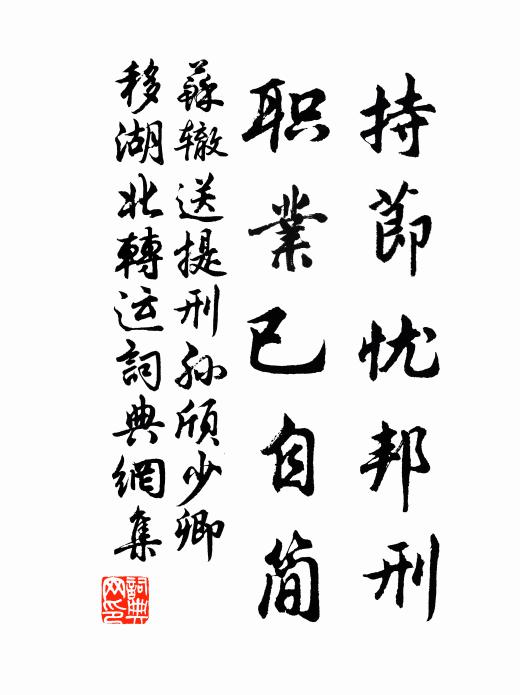 持節忧邦刑
职業已自简
蘇辙送提刑孙颀少卿
移湖北轉运詞典網集
詞典网印